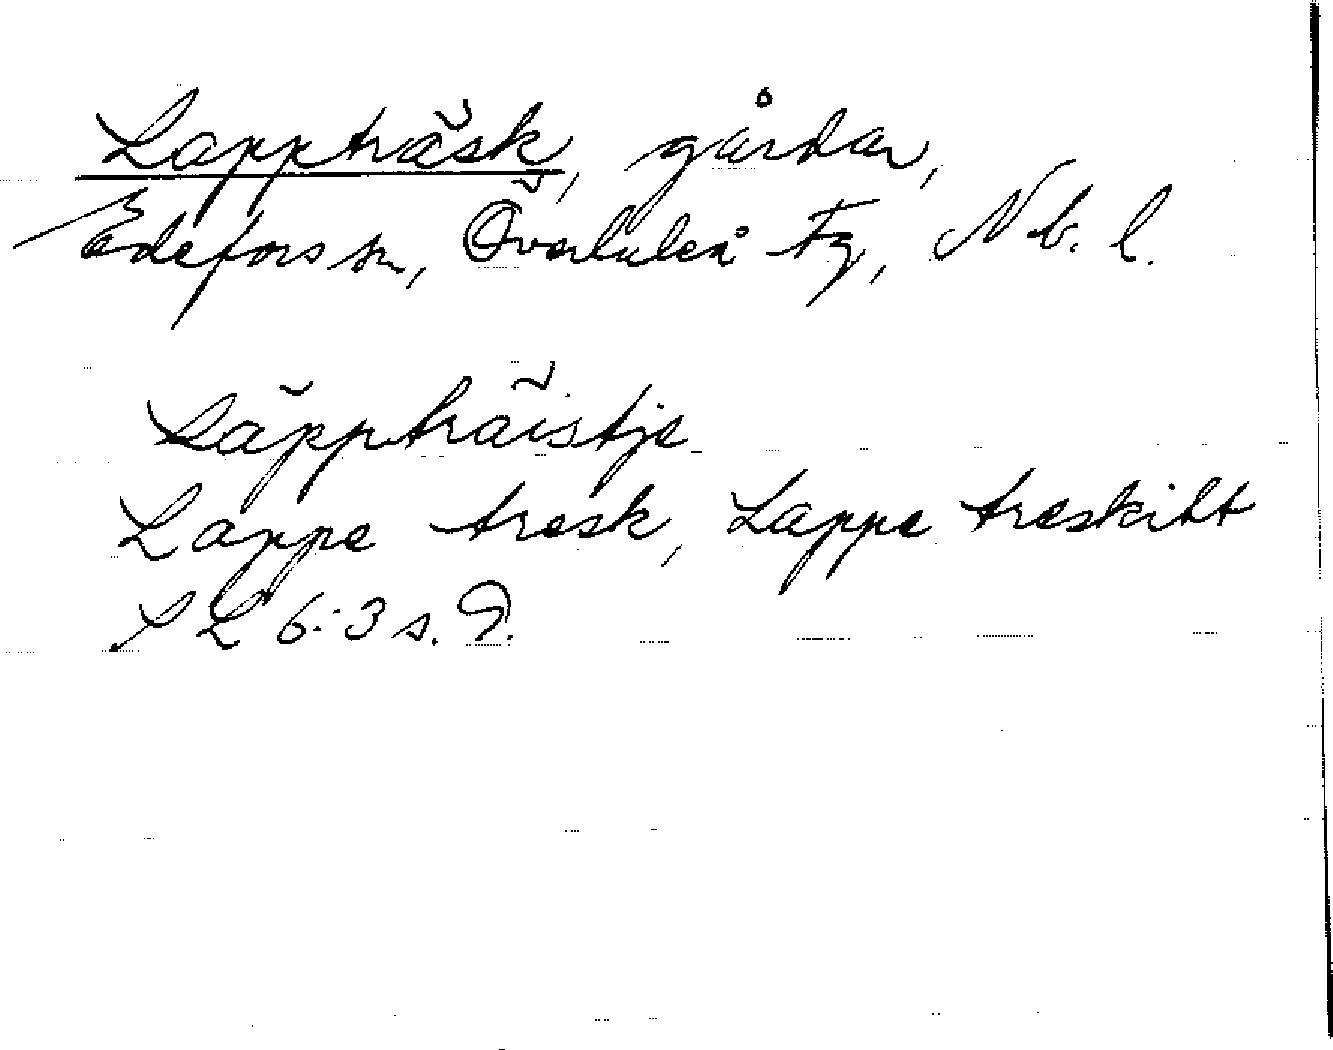 Lappträsk, gårdar,
Edefors sn, Överluleå tg, Nb. l.
Läppträistje
Lappe tresk, Lappe treskitt
SL 6:3 s. 9.